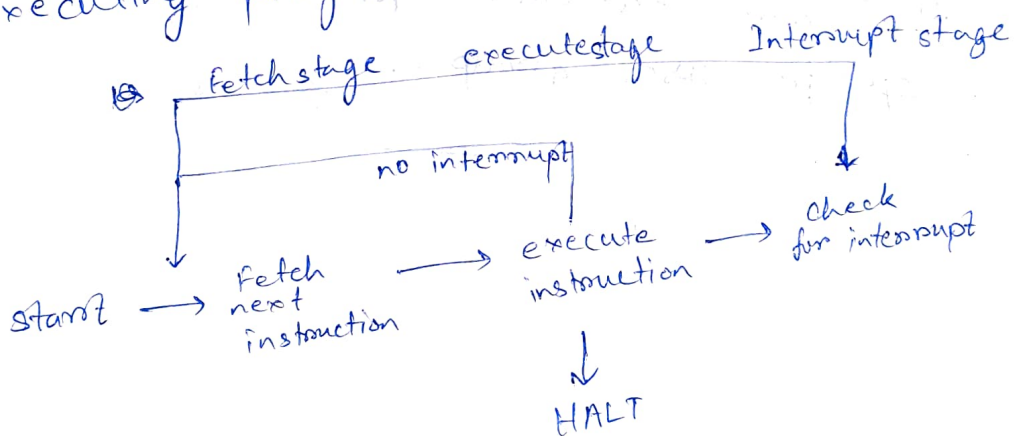 Fetch stage executestage Interrupt stage
no interrupt
Start
Fetch
next
instruction
execute
instruction
check
for interrupt
HALT